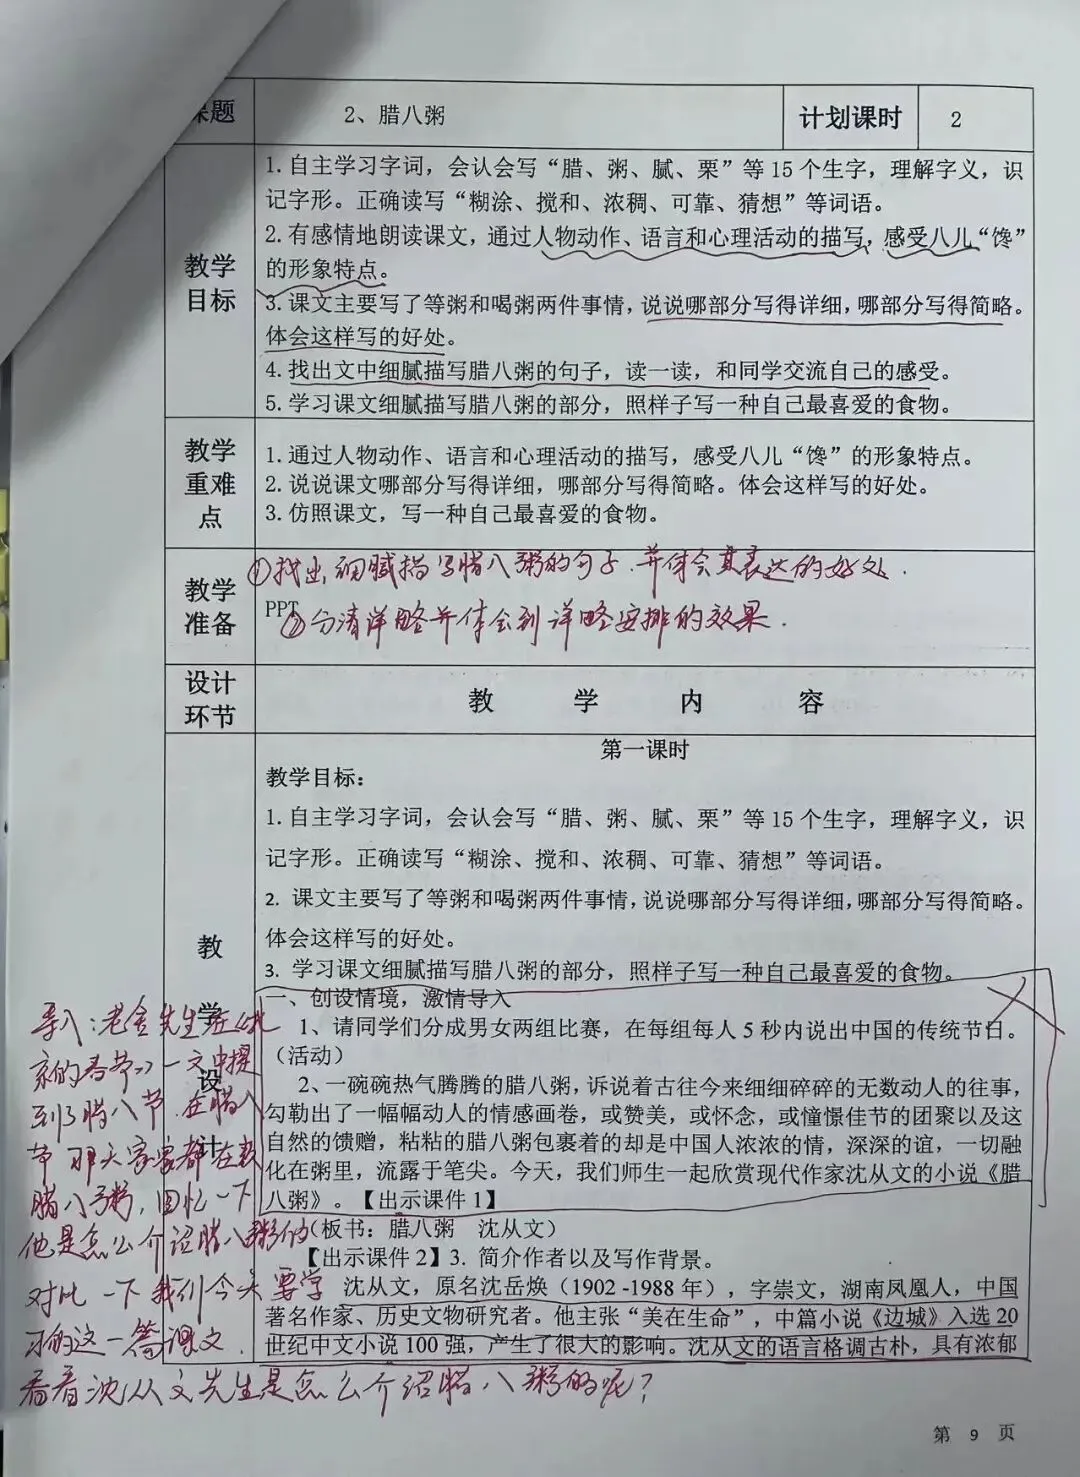 课题 2、腊八粥 计划课时 2
教学目标
1. 自主学习字词，会认会写“腊、粥、腻、栗”等 15 个生字，理解字义，识
记字形。正确读写“糊涂、搅和、浓稠、可靠、猜想”等词语。
2. 有感情地朗读课文，通过人物动作、语言和心理活动的描写，感受八儿“馋”
的形象特点。
3. 课文主要写了等粥和喝粥两件事情，说说哪部分写得详细，哪部分写得简略。
体会这样写的好处。
4. 找出文中细腻描写腊八粥的句子，读一读，和同学交流自己的感受。
5. 学习课文细腻描写腊八粥的部分，照样子写一种自己最喜爱的食物。
教学重难点
1. 通过人物动作、语言和心理活动的描写，感受八儿“馋”的形象特点。
2. 说说课文哪部分写得详细，哪部分写得简略。体会这样写的好处。
3. 仿照课文，写一种自己最喜爱的食物。
①找出细腻描写腊八粥的句子.并体会其表达的好处.
教学准备
PPT
②分清详略并体会到详略安排的效果.
设计环节 教 学 内 容
教学设计
第一课时
教学目标：
1. 自主学习字词，会认会写“腊、粥、腻、栗”等 15 个生字，理解字义，识
记字形。正确读写“糊涂、搅和、浓稠、可靠、猜想”等词语。
2. 课文主要写了等粥和喝粥两件事情，说说哪部分写得详细，哪部分写得简略。
体会这样写的好处。
3. 学习课文细腻描写腊八粥的部分，照样子写一种自己最喜爱的食物。
一、创设情境，激情导入
1、请同学们分成男女两组比赛，在每组每人 5 秒内说出中国的传统节日。
（活动）
2、一碗碗热气腾腾的腊八粥，诉说着古往今来细细碎碎的无数动人的往事，
勾勒出了一幅幅动人的情感画卷，或赞美，或怀念，或憧憬佳节的团聚以及这
自然的馈赠，粘粘的腊八粥包裹着的却是中国人浓浓的情，深深的谊，一切融
化在粥里，流露于笔尖。今天，我们师生一起欣赏现代作家沈从文的小说《腊
八粥》。【出示课件 1】
（板书：腊八粥 沈从文）
【出示课件 2】3. 简介作者以及写作背景。
沈从文，原名沈岳焕（1902 -1988 年），字崇文，湖南凤凰人，中国
著名作家、历史文物研究者。他主张“美在生命”，中篇小说《边城》入选 20
世纪中文小说 100 强，产生了很大的影响。沈从文的语言格调古朴，具有浓郁
导入：老舍先生在《北
京的春节》一文中提
到了腊八节.在腊八
节那天家家都在熬
腊八粥，回忆一下
他是怎么介绍腊八粥的
对比一下我们今天要学
习的这一篇课文.
看看沈从文先生是怎么介绍腊八粥的呢？
第 9 页